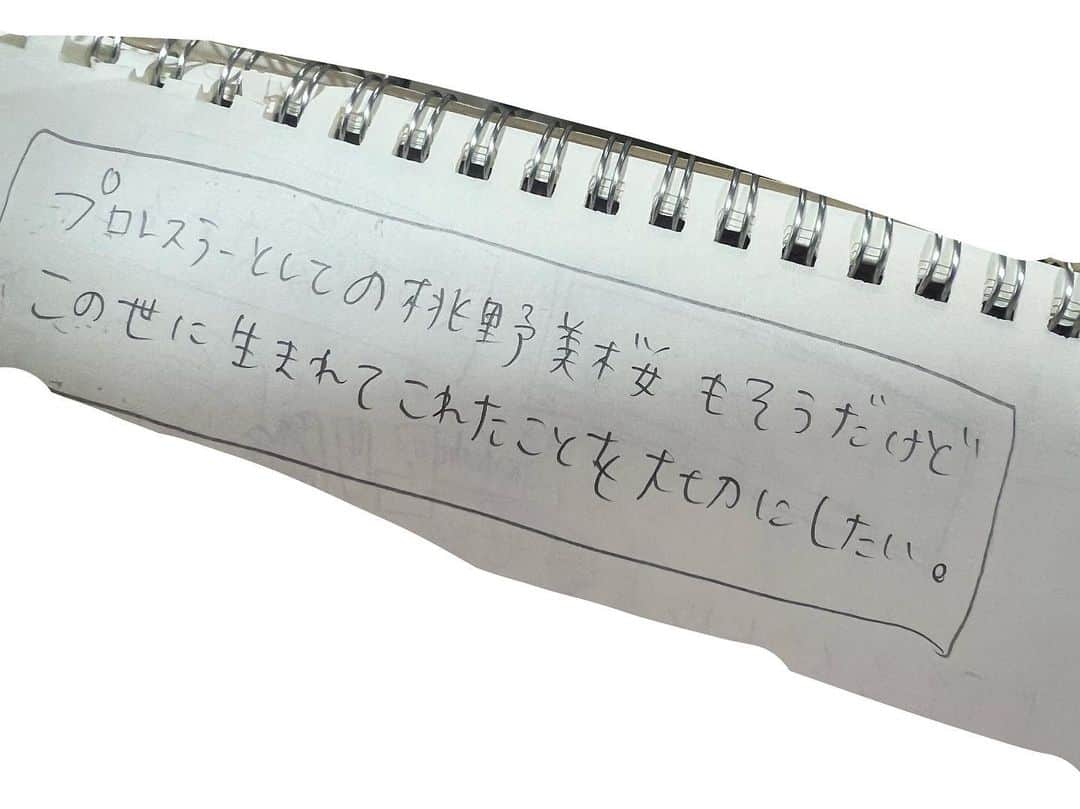 プロレスラーとしての桃野美桜もそうだけど
この世に生まれてこれたことを大切にしたい。